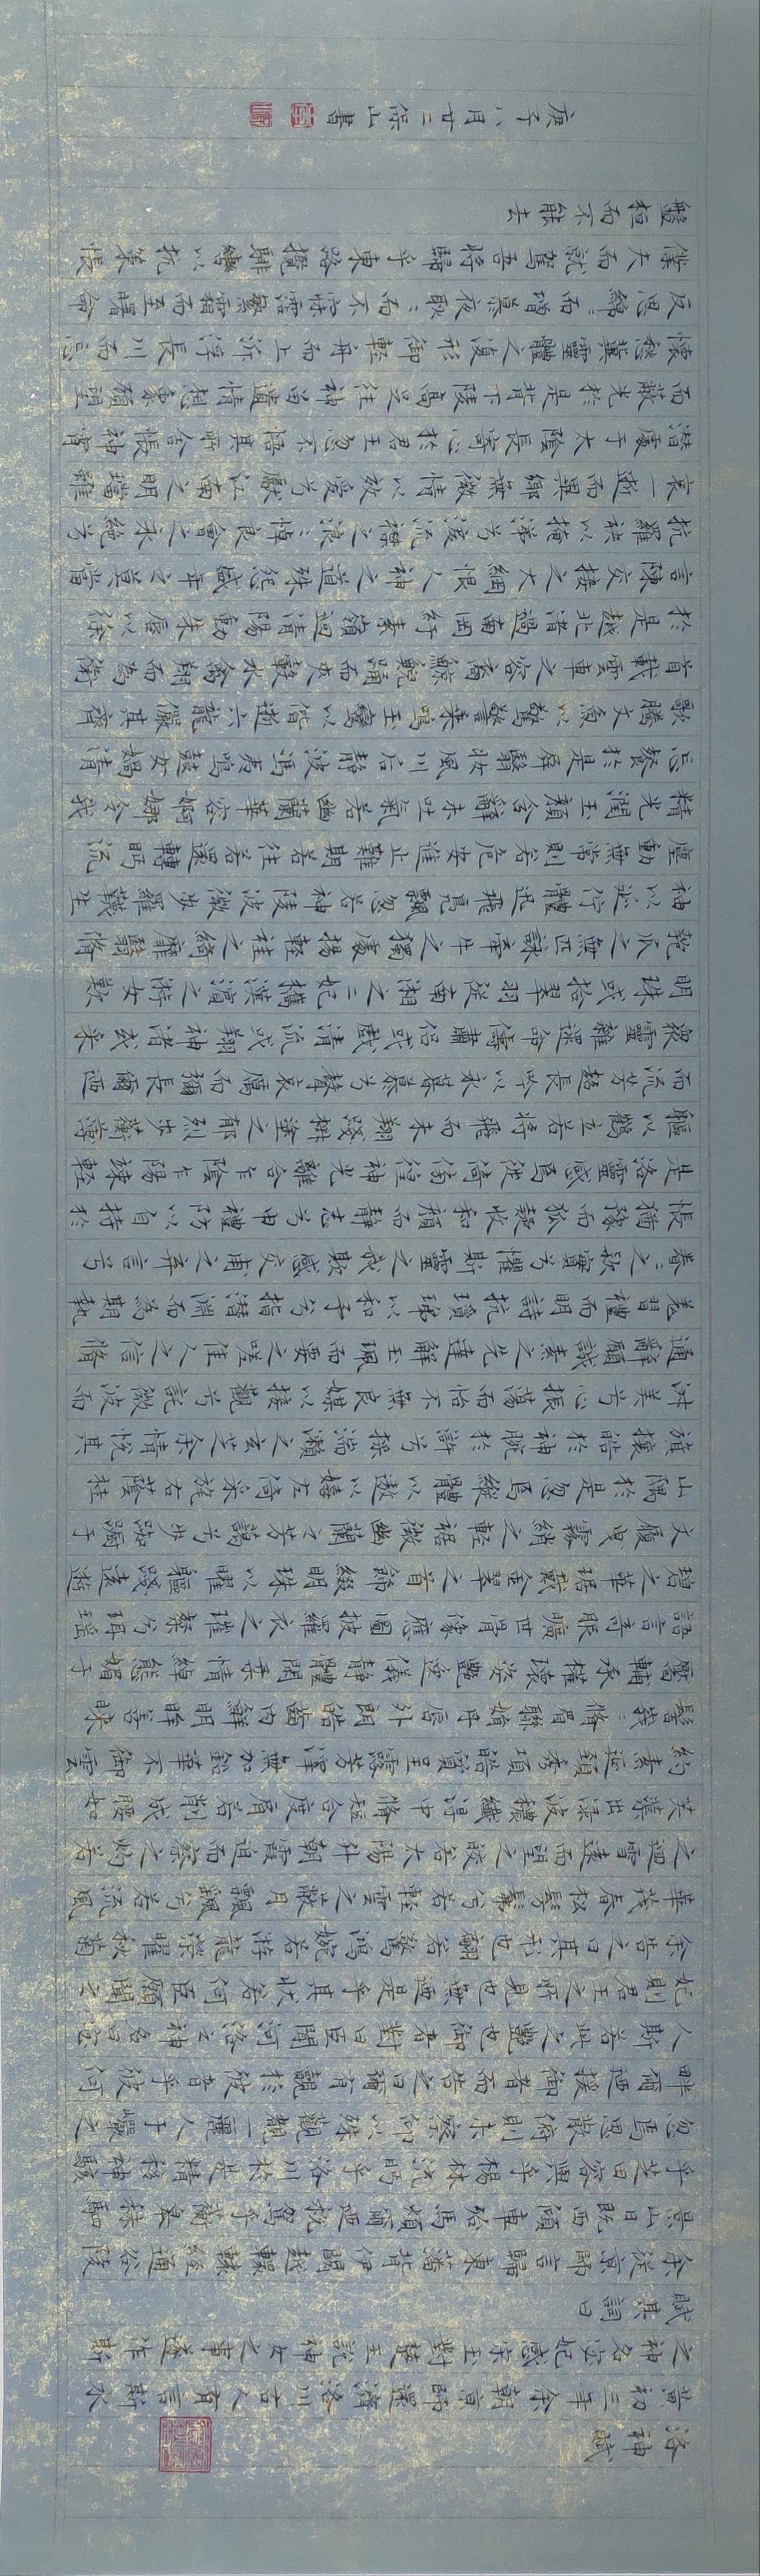 洛神賦
黃初三年余朝京師還濟洛川古人有言斯水
之神名宓妃感宋玉對楚王說神女之事遂作斯
賦其詞曰
余從京師言歸東藩背伊闕越轘轅經通谷陵
景山日既西傾車殆馬煩爾迺稅駕乎蘅皋秣駟
乎芝田容與乎楊林流眄乎洛川於是精移神駭
忽焉思散俯則未察仰以殊觀覩一麗人于巖之
畔爾迺援御者而告之曰爾有覿於彼者乎彼何
人斯若此之艷也御者對曰臣聞河洛之神名曰宓
妃則君王之所見也無迺是乎其狀若何臣願聞之
余告之曰其形也翩若驚鴻婉若游龍榮曜秋菊
華茂春松髣髴兮若輕雲之蔽月飄颻兮若流風
之迴雪遠而望之皎若太陽升朝霞迫而察之灼若
芙蕖出淥波穠纖得中脩短合度肩若削成腰如
約素延頸秀項皓質呈露芳澤無加鉛華不御雲
髻峩〻脩眉聯娟丹唇外朗皓齒內鮮明眸善睞
靨輔承權瓌姿艷逸儀靜體閑柔情綽態媚于
語言奇服曠世骨像應圖披羅衣之璀粲兮珥瑤
碧之華琚戴金翠之首飾綴明珠以耀軀踐遠遊
文履曳霧綃之輕裾微幽蘭之芳藹兮步踟躕于
山隅於是忽焉縱體以遨以嬉左倚采旄右蔭桂
旗攘皓於神腕於滸兮採湍瀨之玄芝余情悅其
淑美兮心振蕩而不怡無良媒以接歡兮託微波而
通辭願誠素之先達解玉珮而要之嗟佳人之信脩
羌習禮而明詩抗瓊珶以和予兮指潛淵而為期執
眷〻之款實兮懼斯靈之我欺感交甫之棄言兮
悵猶豫而狐疑收和顏而靜志兮申禮防以自持於
是洛靈感焉徙倚傍徨神光離合乍陰乍陽竦輕
軀以鶴立若將飛而未翔踐椒塗之郁烈步蘅薄
而流芳超長吟以永慕兮聲哀厲而彌長爾迺
衆靈雜遝命儔嘯侶或戲清流或翔神渚或采
明珠或拾翠羽從南湘之二妃攜漢濱之游女歎
匏瓜之無匹詠牽牛之獨處揚輕袿之綺靡翳脩
袖以延佇體迅飛鳧飄忽若神陵波微步羅韈生
塵動無常則若危安進止難期若往若還轉眄流
精光潤玉顏含辭未吐氣若幽蘭華容婀娜令我
忘餐於是屏翳收風川后靜波馮夷鳴鼓女媧清
歌騰文魚以警乘鳴玉鸞以偕逝六龍儼其齊
首載雲車之容裔鯨鯢踊而夾轂水禽翔而為衛
於是越北沚過南岡紆素領迴清陽動朱唇以徐
言陳交接之大綱恨人神之道殊怨盛年之莫當
抗羅袂以掩涕兮淚流襟之浪〻悼良會之永絕兮
哀一逝而異鄉無微情以效愛兮獻江南之明璫雖
潛處于太陰長寄心於君王忽不悟其所舍悵神宵
而蔽光於是背下陵高足往神留遺情想像顧望
懷愁冀靈體之復形御輕舟而上泝浮長川而忘
反思綿〻而增慕夜耿〻而不寐霑繁霜而至曙命
僕夫而就駕吾將歸乎東路攬騑轡以抗策悵
盤桓而不能去
庚子八月廿二保山書